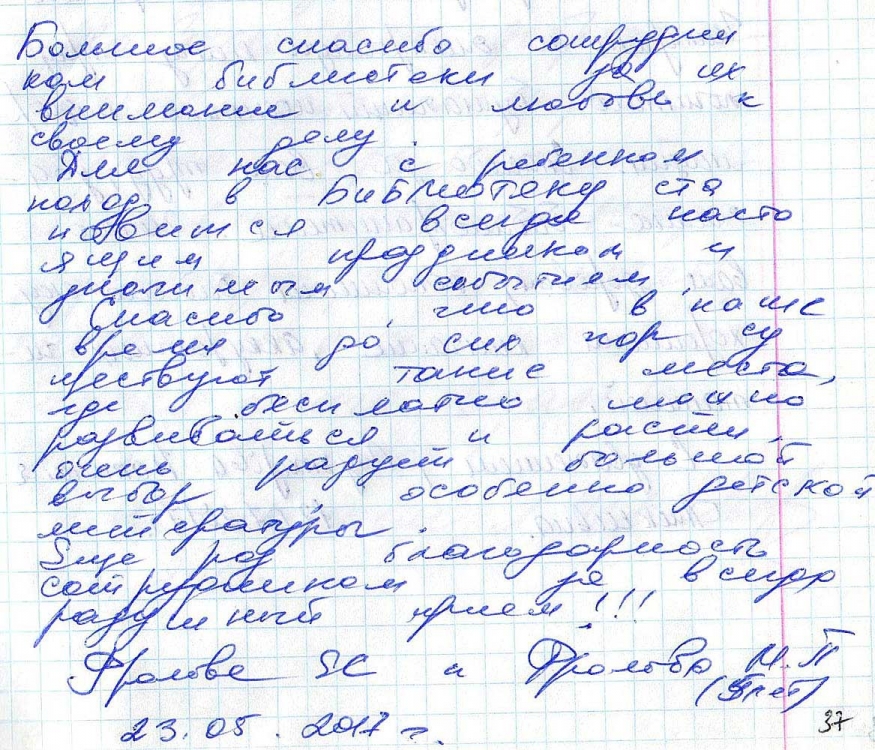 Большое спасибо сотрудни
кам библиотеки за их
внимание и любовь к
своему делу.
Для нас с ребенком
поход в библиотеку ста
новится всегда насто
ящим праздником и
значимым событием.
Спасибо, что в наше
время до сих пор су
ществуют такие места,
где бесплатно можно
развиваться и расти.
очень радует большой
выбор, особенно детской
литературы.
Еще раз благодарность
сотрудникам за всегда
радушный прием!!!
Фролова ЕС и Фролова М.П
лет)
23.05.2017 г.
37